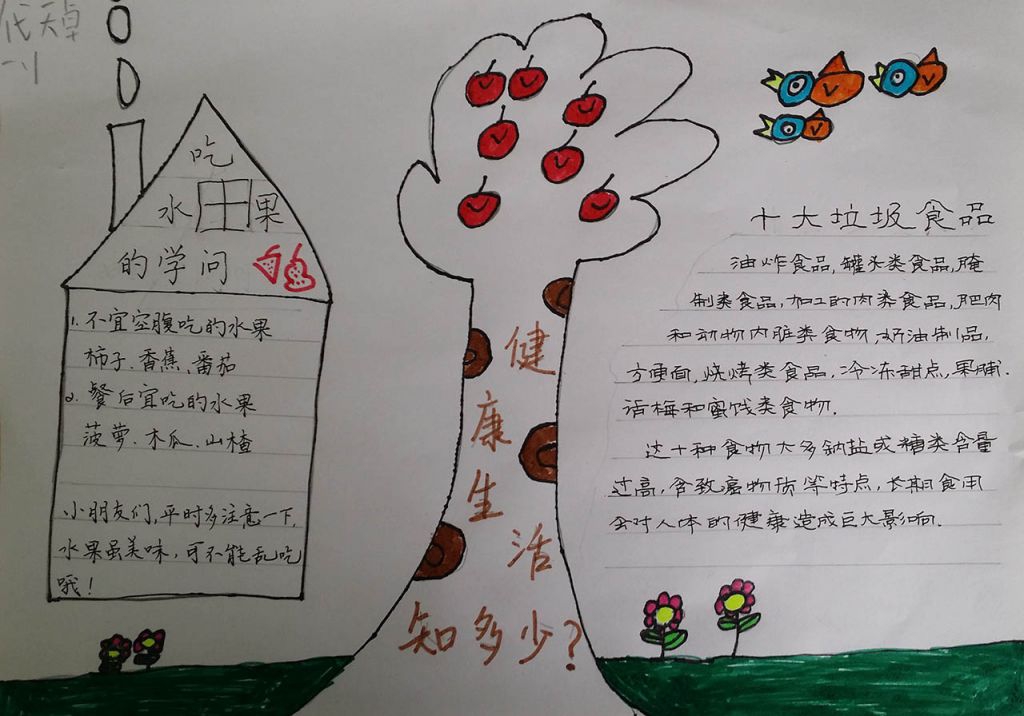 代天卓
一1
吃
水果
的学问
1.不宜空腹吃的水果
柿子、香蕉、番茄
2.餐后宜吃的水果
菠萝、木瓜、山楂
小朋友们,平时多注意一下,
水果虽美味,可不能乱吃
哦!
健
康
生
活
知多少?
十大垃圾食品
油炸食品,罐头类食品,腌
制类食品,加工的肉类食品,肥肉
和动物内脏类食物,奶油制品,
方便面,烧烤类食品,冷冻甜点,果脯.
话梅和蜜饯类食物.
这十种食物大多钠盐或糖类含量
过高,含致癌物质等特点,长期食用
会对人体的健康造成巨大影响.